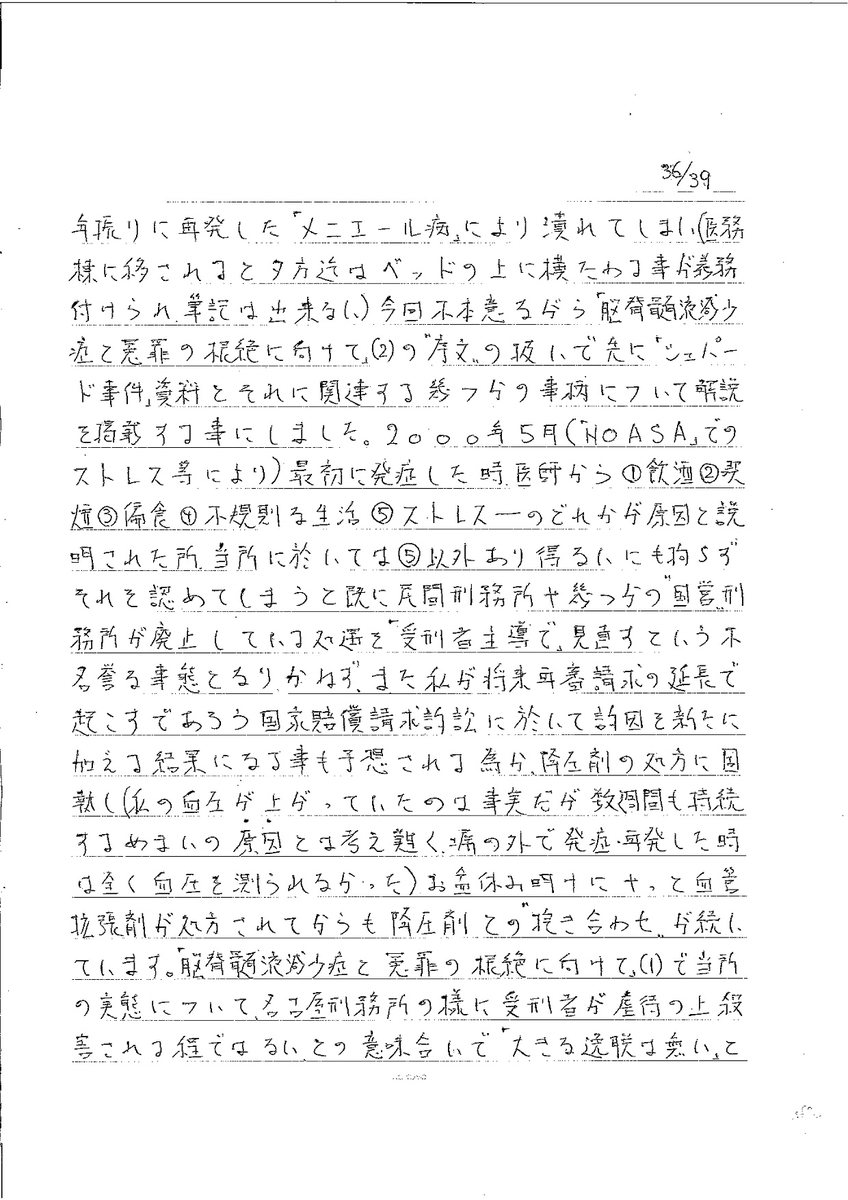 36/39
年振りに再発した「メニエール病」により潰れてしまい(医務
棟に移されると夕方迄はベッドの上に横たわる事が義務
付けられ、筆記は出来ない)今回不本意ながら「脳脊髄液減少
症と冤罪の根絶に向けて」(2)の"序文"の扱いで先に「シェパー
ド事件」資料とそれに関連する幾つかの事柄について解説
を掲載する事にしました。2000年5月(「NOASA」での
ストレス等により)最初に発症した時、医師から①飲酒②喫
煙③偏食④不規則な生活⑤ストレス―のどれかが原因と説
明された所、当所に於いては⑤以外あり得ないにも拘らず
それを認めてしまうと既に民間刑務所や幾つかの"国営"刑
務所が廃止している処遇を「受刑者主導で」見直すという不
名誉な事態となりかねず、また私が将来再審請求の延長で
起こすであろう国家賠償請求訴訟に於いて訴因を新たに
加える結果になる事も予想される為か、降圧剤の処方に固
執し(私の血圧が上がっていたのは事実だが数週間も持続
するめまいの原因とは考え難く、塀の外で発症・再発した時
は全く血圧を測られなかった)お盆休み明けにやっと血管
拡張剤が処方されてからも降圧剤との"抱き合わせ"が続い
ています。「脳脊髄液減少症と冤罪の根絶に向けて」(1)で当所
の実態について、名古屋刑務所の様に受刑者が虐待の上殺
害される程ではない、との意味合いで「大きな逸脱は無い」と